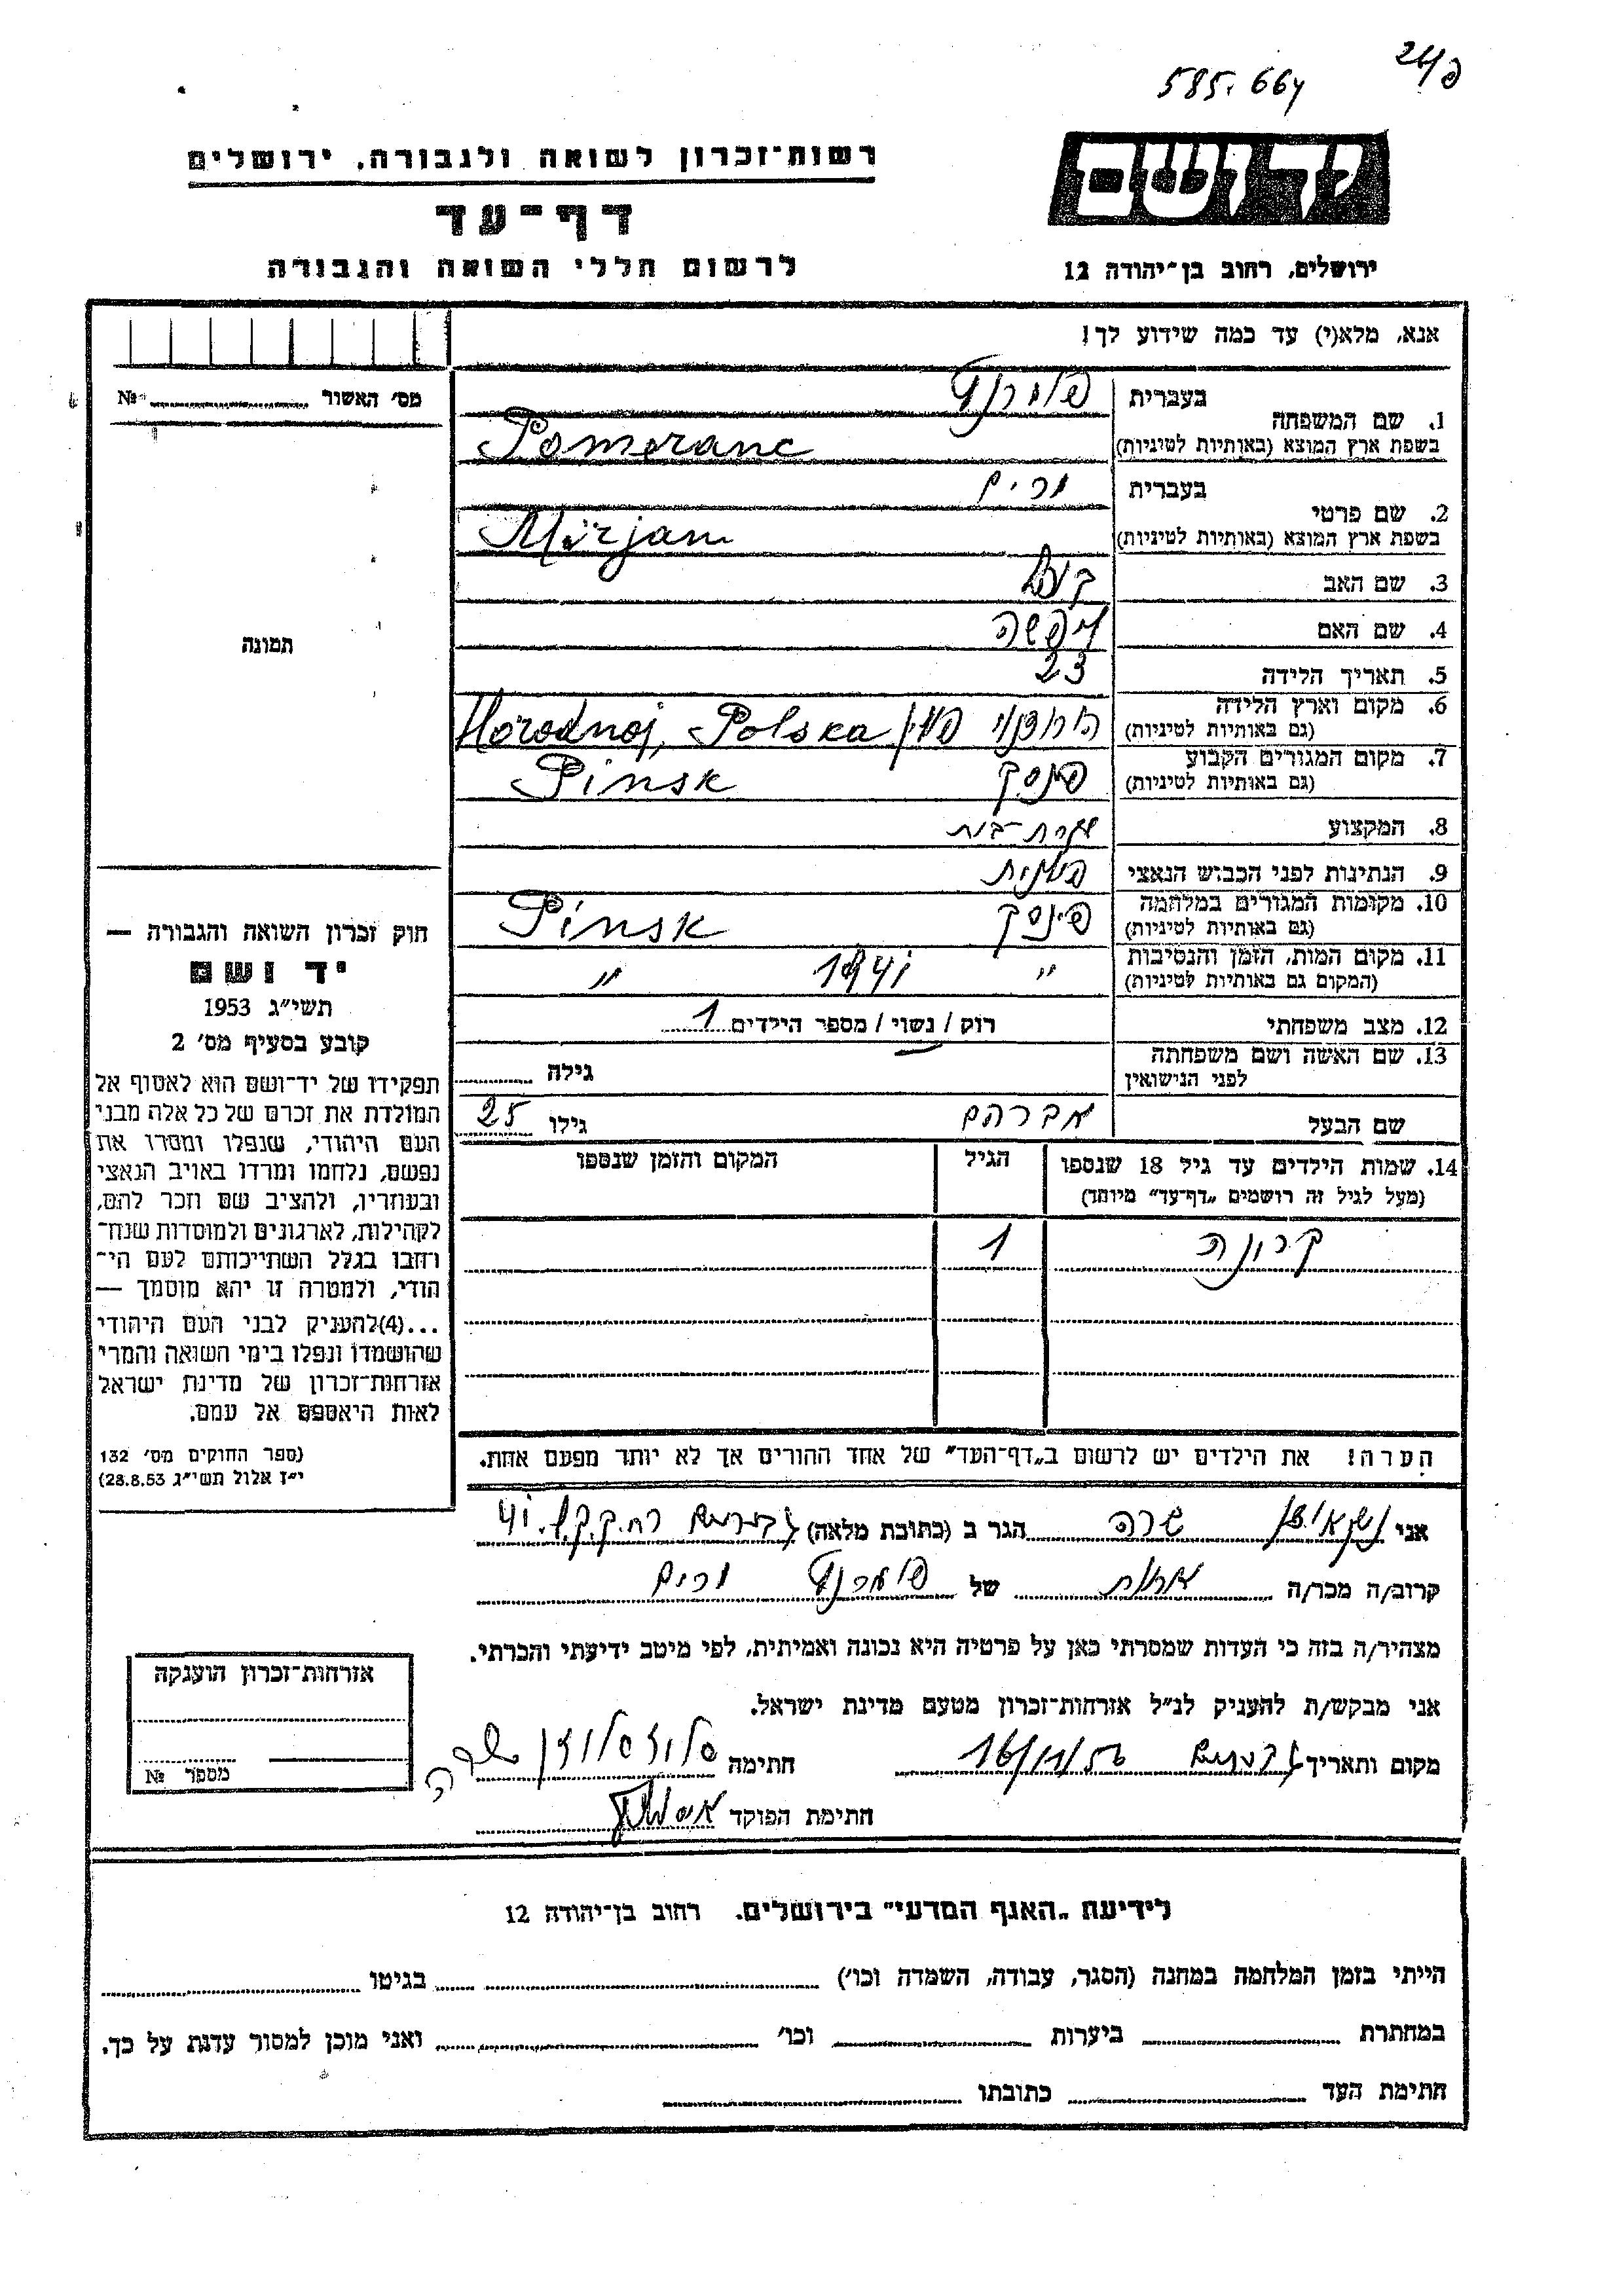 24/פ
585.664
יד ושם
רשות־זכרון לשואה ולגבורה, ירושלים
דף־עד
לרשום חללי השואה והגבורה
ירושלים, רחוב בן־יהודה 12
אנא, מלא(י) עד כמה שידוע לך!
מס׳ האשור № 
תמונה
1. שם המשפחה
בעברית
בשפת ארץ המוצא (באותיות לטיניות) Pomeranc
2. שם פרטי
בעברית מרים
בשפת ארץ המוצא (באותיות לטיניות) Mirjam
3. שם האב
4. שם האם
5. תאריך הלידה 23
6. מקום וארץ הלידה
(גם באותיות לטיניות) פולין Horodnoj, Polska
7. מקום המגורים הקבוע
(גם באותיות לטיניות) פינסק Pinsk
8. המקצוע עקרת-בית
9. הנתינות לפני הכבוש הנאצי פולנית
10. מקומות המגורים במלחמה
(גם באותיות לטיניות) פינסק Pinsk
11. מקום המות, הזמן והנסיבות
(המקום גם באותיות לטיניות) " 1941 "
12. מצב משפחתי רוק / נשוי / מספר הילדים 1
13. שם האשה ושם משפחתה
לפני הנישואין גילה
שם הבעל אברהם גילו 25
14. שמות הילדים עד גיל 18 שנספו
(מעל לגיל זה רושמים „דף־עד” מיוחד)
הגיל
המקום והזמן שנספו
1
הערה! את הילדים יש לרשום ב„דף־העד” של אחד ההורים אך לא יותר מפעם אחת.
חוק זכרון השואה והגבורה —
יד ושם
תשי״ג 1953
קובע בסעיף מס׳ 2
תפקידו של יד־ושם הוא לאסוף אל
המולדת את זכרם של כל אלה מבני
העם היהודי, שנפלו ומסרו את
נפשם, נלחמו ומרדו באויב הנאצי
ובעוזריו, ולהציב שם וזכר להם,
לקהילות, לארגונים ולמוסדות שנח־
רחבו בגלל השתייכותם לעם הי־
הודי, ולמטרה זו יהא מוסמך —
...(4)להעניק לבני העם היהודי
שהושמדו ונפלו בימי השואה והמרי
אזרחות־זכרון של מדינת ישראל
לאות היאספם אל עמם.
(ספר החוקים מס׳ 132
י״ז אלול תשי״ג 28.8.53)
אני שרה הגר ב (כתובת מלאה)
קרוב/ה מכר/ה אחות של מרים
מצהיר/ה בזה כי העדות שמסרתי כאן על פרטיה היא נכונה ואמיתית, לפי מיטב ידיעתי והכרתי.
אני מבקש/ת להעניק לנ״ל אזרחות־זכרון מטעם מדינת ישראל.
מקום ותאריך 16/11/56 חתימה
חתימת הפוקד
אזרחות־זכרון הוענקה
מספר №
לידיעת „האגף המדעי” בירושלים. רחוב בן־יהודה 12
הייתי בזמן המלחמה במחנה (הסגר, עבודה, השמדה וכו׳) בגיטו
במחתרת ביערות וכו׳ ואני מוכן למסור עדות על כך.
חתימת העד כתובתו